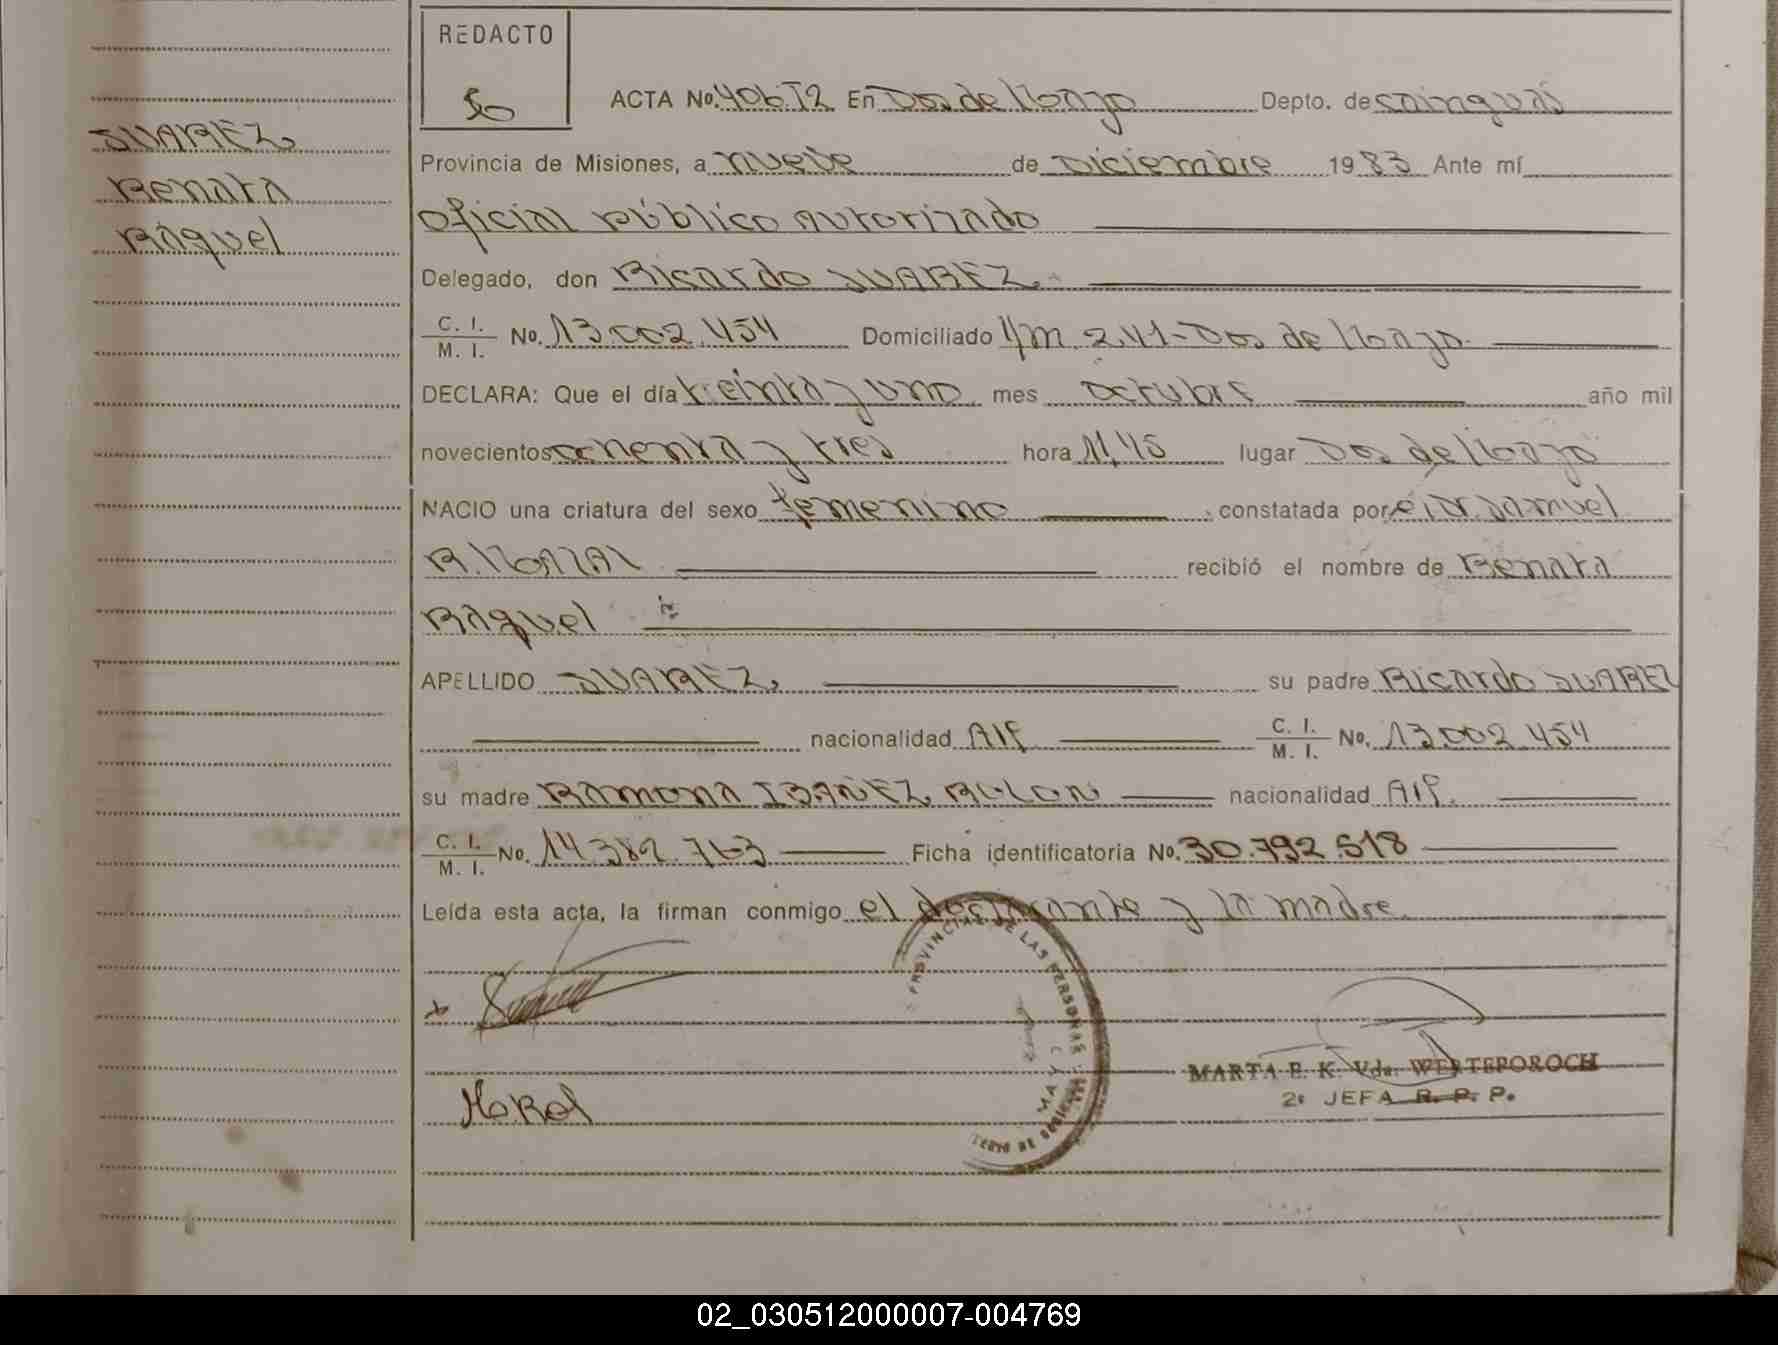 REDACTO
SUAREZ,
Renata
Raquel
ACTA No. 406 T2 En Dos de Mayo Depto. de Cainguás
Provincia de Misiones, a nueve de Diciembre 1983 Ante mí
Oficial público autorizado
Delegado, don Ricardo SUAREZ.
C. I. / M. I. No. 13.002.454 Domiciliado Dos de Mayo.
DECLARA: Que el día treinta y uno mes octubre año mil
novecientos ochenta y tres hora 11,45 lugar Dos de Mayo
NACIO una criatura del sexo femenino constatada por el Dr. Samuel
recibió el nombre de Renata
Raquel
APELLIDO SUAREZ, su padre Ricardo SUAREZ
nacionalidad Arg C. I. / M. I. No. 13.002.454
su madre Ramona IBAÑEZ ROLON nacionalidad Arg.
C. I. / M. I. No. 14.382.763 Ficha identificatoria No. 30.792.518
Leída esta acta, la firman conmigo el declarante y la madre.
PROVINCIAL DE LAS PERSONAS
MARTA E. K. Vda. WERTEPOROCH
2ª JEFA R. P. P.
02_030512000007-004769